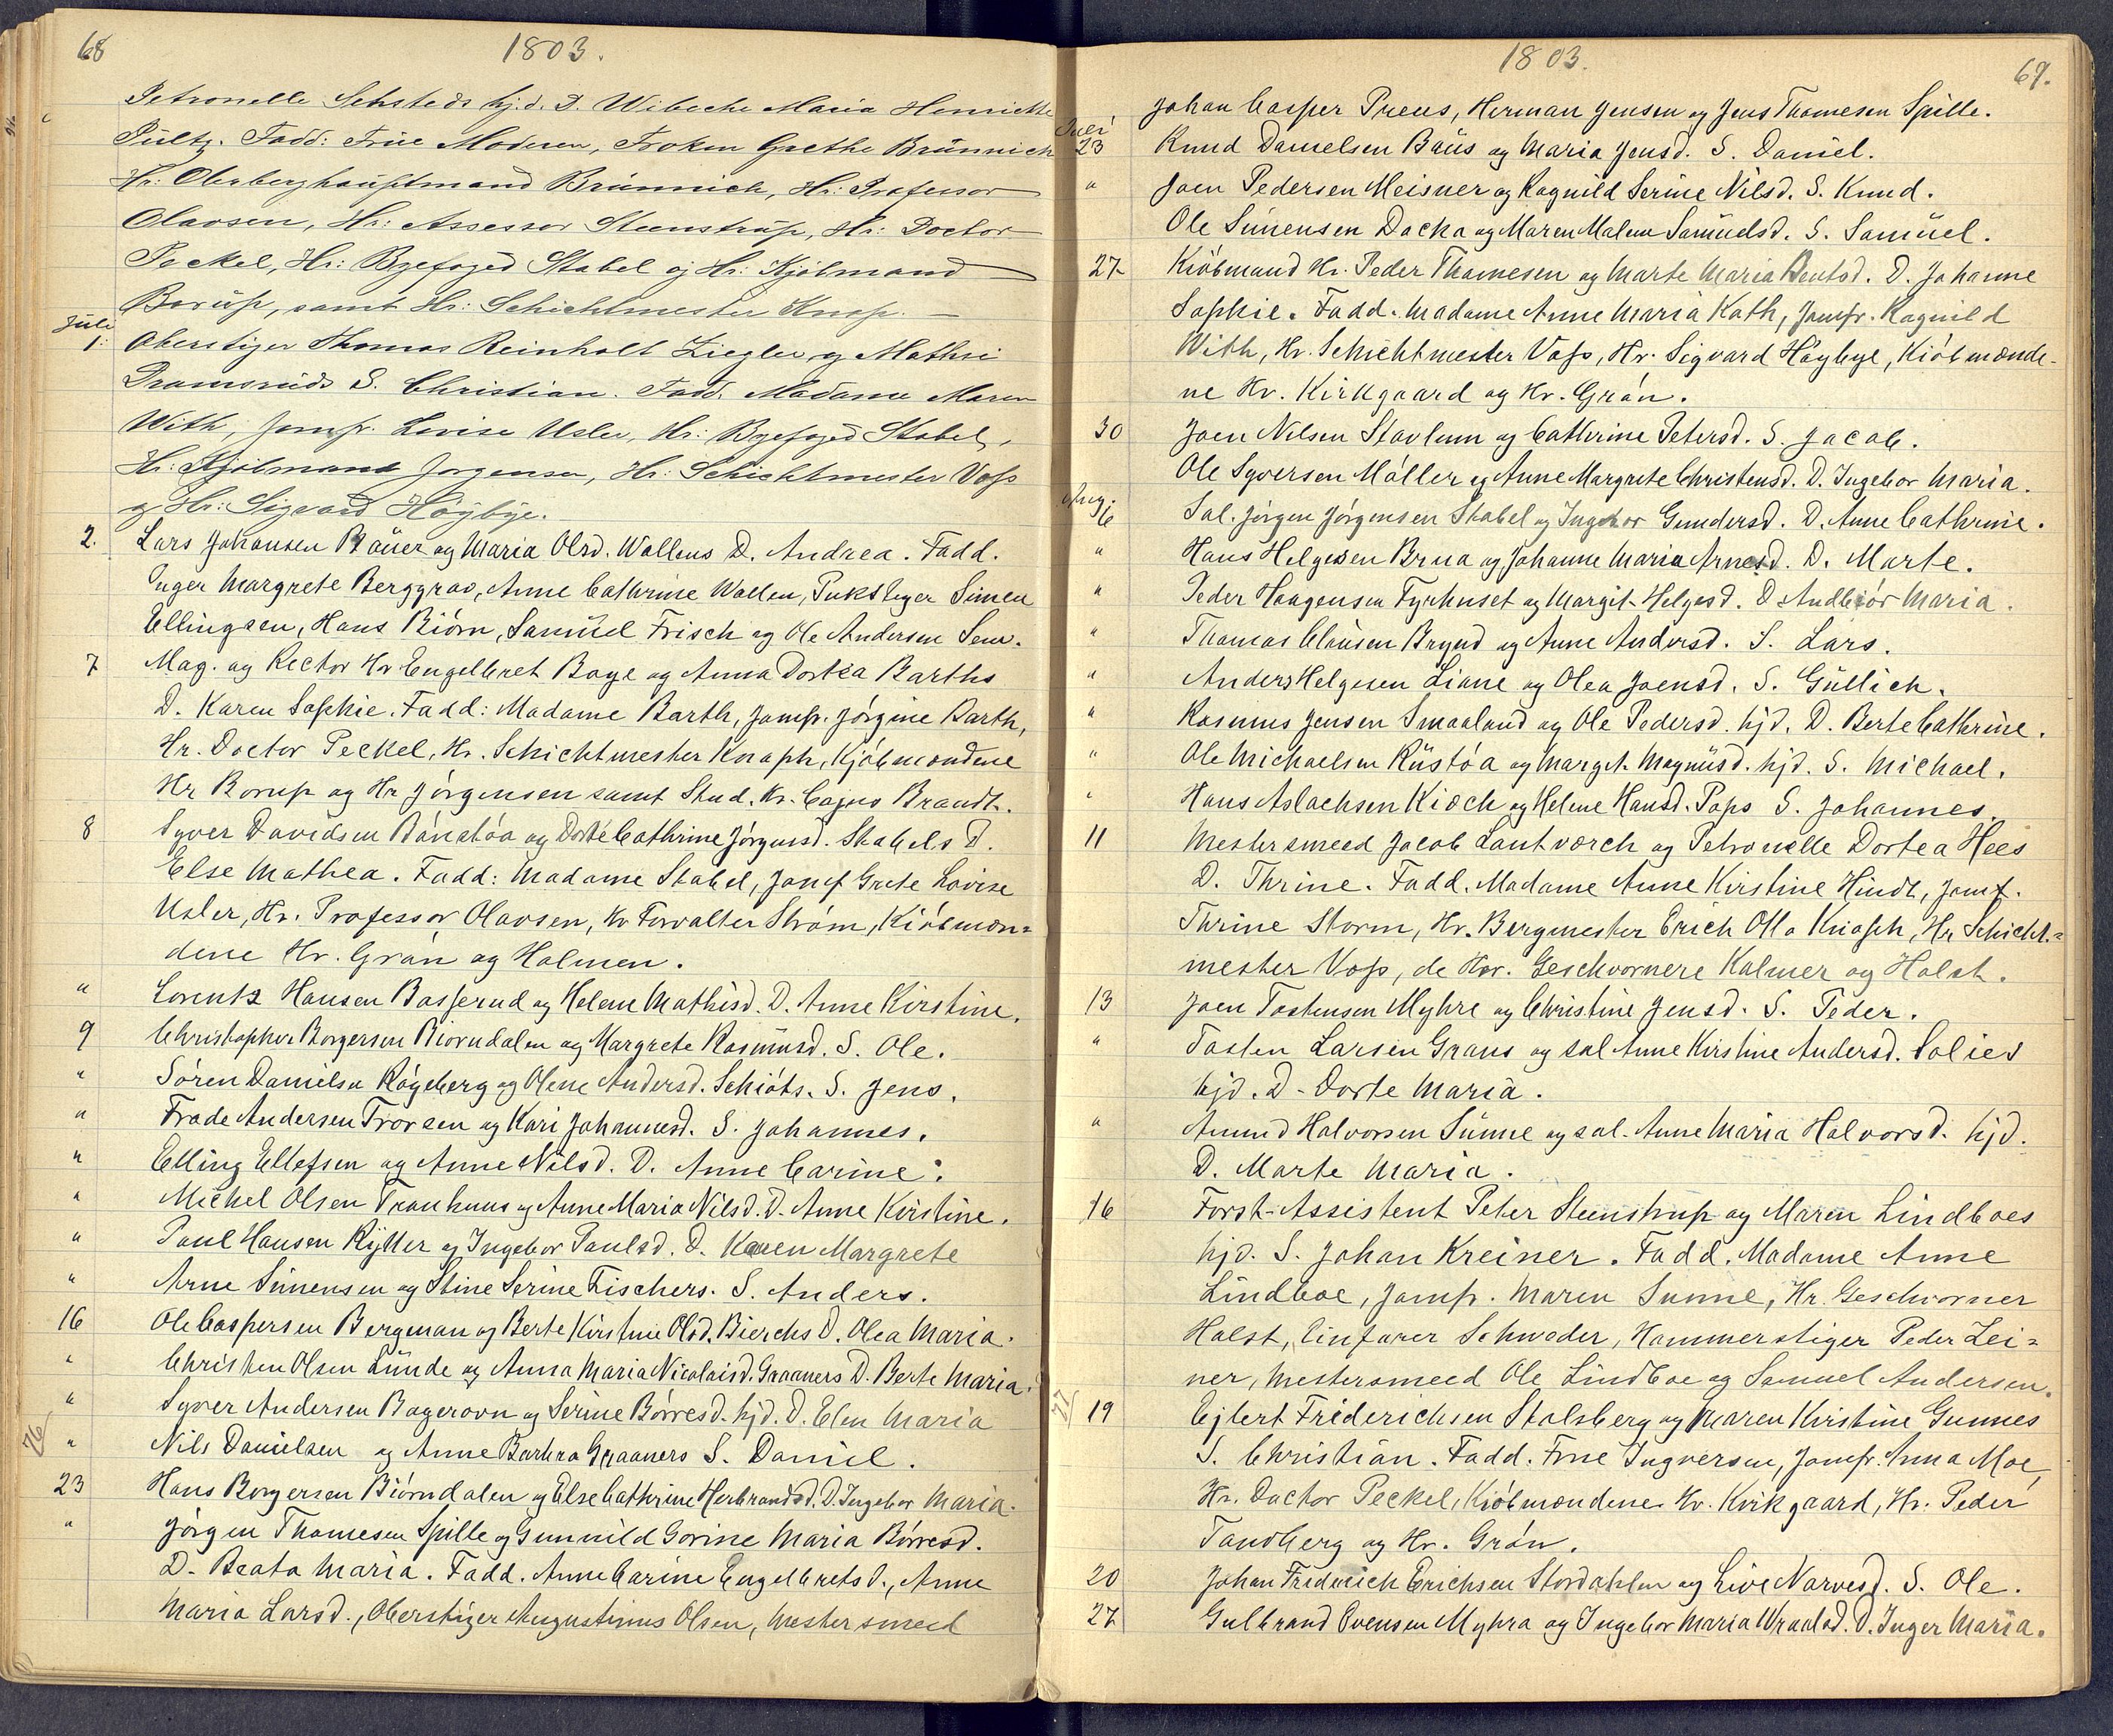 68
1803.
Petronelle Sehsteds hjd. D. Wibeche Maria Henriette
Pültz. Fadd: Früe Moderen, Frøken Grethe Brünnich
Hr: Oberberghauptmand Brünnich, Hr: Professor
Olavsen, Hr: Assessor Steenstrup, Hr: Doctor
Peckel, Hr: Byefoged Stabel og Hr: Kjøbmand
Borup, samt Hr: Schichtmester Knap. —
Juli
1. Oberstiger Thomas Reinholt Ziegler og Mathri
Dramsrüds S. Christian. Fadd. Madame Maren
With, Jomfr. Lovise Usler, Hr: Byefoged Stabel,
Hr: Kjøbmand Jørgensen, Hr: Schichtmester Voss
og Hr: Sigvard Høybye.
2. Lars Johansen Baüer og Maria Olsd. Wollens D. Andrea. Fadd.
Inger Margrete Berggrav, Anne Cathrine Wollen, Pukstiger Simen
Ellingsen, Hans Biørn, Samüel Frisch og Ole Andersen Sem.
7 Mag. og Rector Hr Engelbret Boye og Anna Dortea Barths
D. Karen Sophie. Fadd: Madame Barth, Jomfr. Jørgine Barth,
Hr. Doctor Peckel, Hr. Schichtmester Knaph, Kjøbmændene
Hr Borup og Hr Jørgensen samt Stud. Hr. Cajus Brandt.
8 Syver Davidsen Bånstøa og Dorte Cathrine Jørgensd. Stabels D.
Else Mathea. Fadd: Madame Stabel, Jomf Grete Lovise
Usler, Hr. Professor Olavsen, Hr Forvalter Strøm, Kiøbmæn=
dene Hr. Grøn og Holmen.
" Lorentz Hansen Basserud og Helene Mathisd. D. Anne Kirstine.
9 Christopher Borgersen Biørndalen og Margrete Rasmüsd. S. Ole.
" Søren Danielsen Røgeberg og Olene Andersd. Schiøts. S. Jens.
" Frode Andersen Trorsen og Kari Johannesd. S. Johannes.
" Elling Ellefsen og Anne Nilsd. D. Anne Carine.
" Michel Olsen Tranhuus og Anne Maria Nilsd. D. Anne Kirstine.
" Poul Hansen Rytter og Ingebor Poulsd. D. Karen Margrete
" Arne Simensen og Stine Serine Fischers. S. Anders.
16 Ole Caspersen Bergman og Berte Kirstine Olsd. Bierchs D. Olea Maria.
" Christen Olsen Lünde og Anna Maria Nicolaisd. Graaners D. Berte Maria.
" Syver Andersen Bagerovn og Serine Børresd. hjd. D. Elen Maria
76
" Nils Danielsen og Anne Barbra Graaners S. Daniel.
23 Hans Borgersen Biørndalen og Else Cathrine Herbrandsd. D. Ingebor Maria.
" Jørgen Thomesen Spille og Gunnild Gorine Maria Børresd.
D. Beata Maria. Fadd. Anne Carine Engelbretsd., Anne
Maria Larsd., Oberstiger Augustinus Olsen, Mestersmeed
1803.
69.
Johan Casper Preus, Herman Jensen og Jens Thomesen Spille.
Juli
23 Knud Danielsen Baüs og Maria Jensd. S. Daniel.
" Joen Pedersen Meisner og Ragnild Serine Nilsd. S. Knud.
Ole Simensen Docka og Maren Malene Samüelsd. S. Samüel.
27 Kiøbmand Hr. Peder Thomesen og Marte Maria Bentsd. D. Johanne
Sophie. Fadd. Madame Anne Maria Kath, Jomfr. Ragnild
With, Hr. Schichtmester Voss, Hr. Sigvard Høybye, Kiøbmænde-
ne Hr. Kirkgaard og Hr. Grøn.
30 Joen Nilsen Stavlum og Cathrine Petersd. S. Jacob.
Ole Syversen Møller og Anne Margrete Christensd. D. Ingebor Maria.
Aug.
6 Sal. Jørgen Jørgensen Stabel og Ingebor Gundersd. D. Anne Cathrine.
" Hans Helgesen Brua og Johanne Maria Arnesd. D. Marte.
" Peder Haagensen Fyrhuset og Margit Helgesd. D Andbiør Maria.
" Thomas Clausen Brynd og Anne Andersd. S. Lars.
" Anders Helgesen Liane og Olea Joensd. S. Güllich.
" Rasmus Jensen Smaaland og Ole Pedersd. hjd. D. Berte Cathrine.
" Ole Michaelsen Rüstøa og Marget Magnüsd. hjd. S. Michael.
" Hans Aslachsen Kioch og Helene Hansd. Paps S. Johannes.
11 Mestersmeed Jacob Lantværch og Petronelle Dortea Hees
D. Thrine. Fadd. Madame Anne Kirstine Hindt, Jomf.
Thrine Storm, Hr. Bergmester Erich Otto Knaph, Hr Schicht=
mester Voss, de Hrr. Geschvornere Kalmer og Holst.
13 Joen Tostensen Myhre og Christine Jensd. S. Peder.
" Tosten Larsen Graus og sal Anne Kirstine Andersd. Solies
hjd. D. Dorte Maria.
" Amund Halvorsen Sünne og sal. Anne Maria Halvorsd. hjd.
D. Marte Maria.
16 Forst-Assistent Peter Steenstrup og Maren Lindboes
hjd. S. Johan Kreiner. Fadd. Madame Anne
Lindboe, Jomfr. Maren Sunne, Hr. Geschvorner
Holst, Einfarer Schwoder, Hammerstiger Peder Zei=
ner, Mestersmeed Ole Lindboe og Samuel Andersen.
77
19 Ejlert Friderichsen Stalsberg og Maren Kirstine Gunnes
S. Christian. Fadd. Frue Ingversen, Jomfr. Anna Moe,
Hr. Doctor Peckel, Kiøbmændene Hr. Kirkgaard, Hr. Peder
Tandberg og Hr. Grøn.
20 Johan Friderich Erichsen Stordahlen og Live Narvesd. S. Ole.
27 Gulbrand Evensen Myhra og Ingebor Maria Wraalsd. D. Inger Maria.